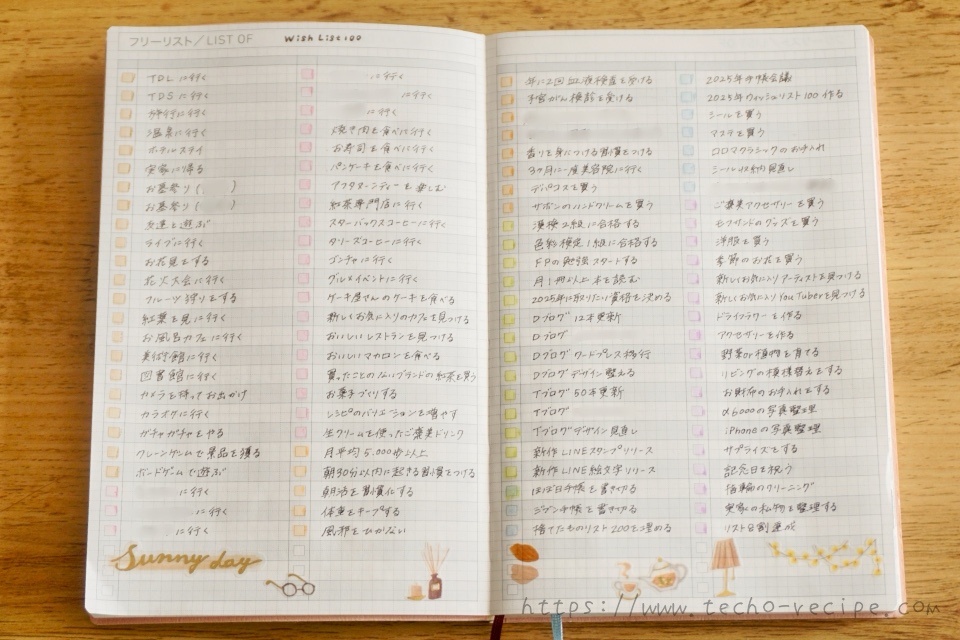 フリーリスト／LIST OF
Wish List 100
TDLに行く
TDSに行く
旅行に行く
温泉に行く
ホテルステイ
実家に帰る
お墓参り（ ）
お墓参り（ ）
友達と遊ぶ
ライブに行く
お花見をする
花火大会に行く
フルーツ狩りをする
紅葉を見に行く
お風呂カフェに行く
美術館に行く
図書館に行く
カメラを持ってお出かけ
カラオケに行く
ガチャガチャをやる
クレーンゲームで景品を獲る
ボードゲームで遊ぶ
に行く
に行く
に行く
に行く
に行く
に行く
焼き肉を食べに行く
お寿司を食べに行く
パンケーキを食べに行く
アフタヌーンティーを楽しむ
紅茶専門店に行く
スターバックスコーヒーに行く
タリーズコーヒーに行く
ゴンチャに行く
グルメイベントに行く
ケーキ屋さんのケーキを食べる
新しくお気に入りのカフェを見つける
おいしいレストランを見つける
おいしいマカロンを食べる
買ったことのないブランドの紅茶を買う
お菓子づくりする
レシピのバリエーションを増やす
生クリームを使ったご褒美ドリンク
月平均5,000歩以上
朝30分以内に起きる習慣をつける
朝活を習慣化する
体重をキープする
風邪をひかない
年に2回血液検査を受ける
子宮がん検診を受ける
香りを身につける習慣をつける
3ヶ月に一度美容院に行く
デパコスを買う
サボンのハンドクリームを買う
漢検2級に合格する
色彩検定1級に合格する
FPの勉強スタートする
月1冊以上本を読む
2025年に取りたい資格を決める
Dブログ 12本更新
Dブログ
Dブログ ワードプレス移行
Dブログ デザイン整える
Tブログ 50本更新
Tブログ
Tブログデザイン見直し
新作LINEスタンプリリース
新作LINE絵文字リリース
ほぼ日手帳を書ききる
ジブン手帳を書ききる
捨てたものリスト200を埋める
2025年手帳会議
2025年ウィッシュリスト100作る
シールを買う
マステを買う
ロロマクラシックのお手入れ
シール収納見直し
ご褒美アクセサリーを買う
モフサンドのグッズを買う
洋服を買う
季節のお花を買う
新しくお気に入りアーティストを見つける
新しくお気に入りYouTuberを見つける
ドライフラワーを作る
アクセサリーを作る
野菜or植物を育てる
リビングの模様替えをする
お財布のお手入れをする
α6000の写真整理
iPhoneの写真整理
サプライズをする
記念日を祝う
指輪のクリーニング
実家の私物を整理する
リスト8割達成
Sunny day
https://www.techo-recipe.com